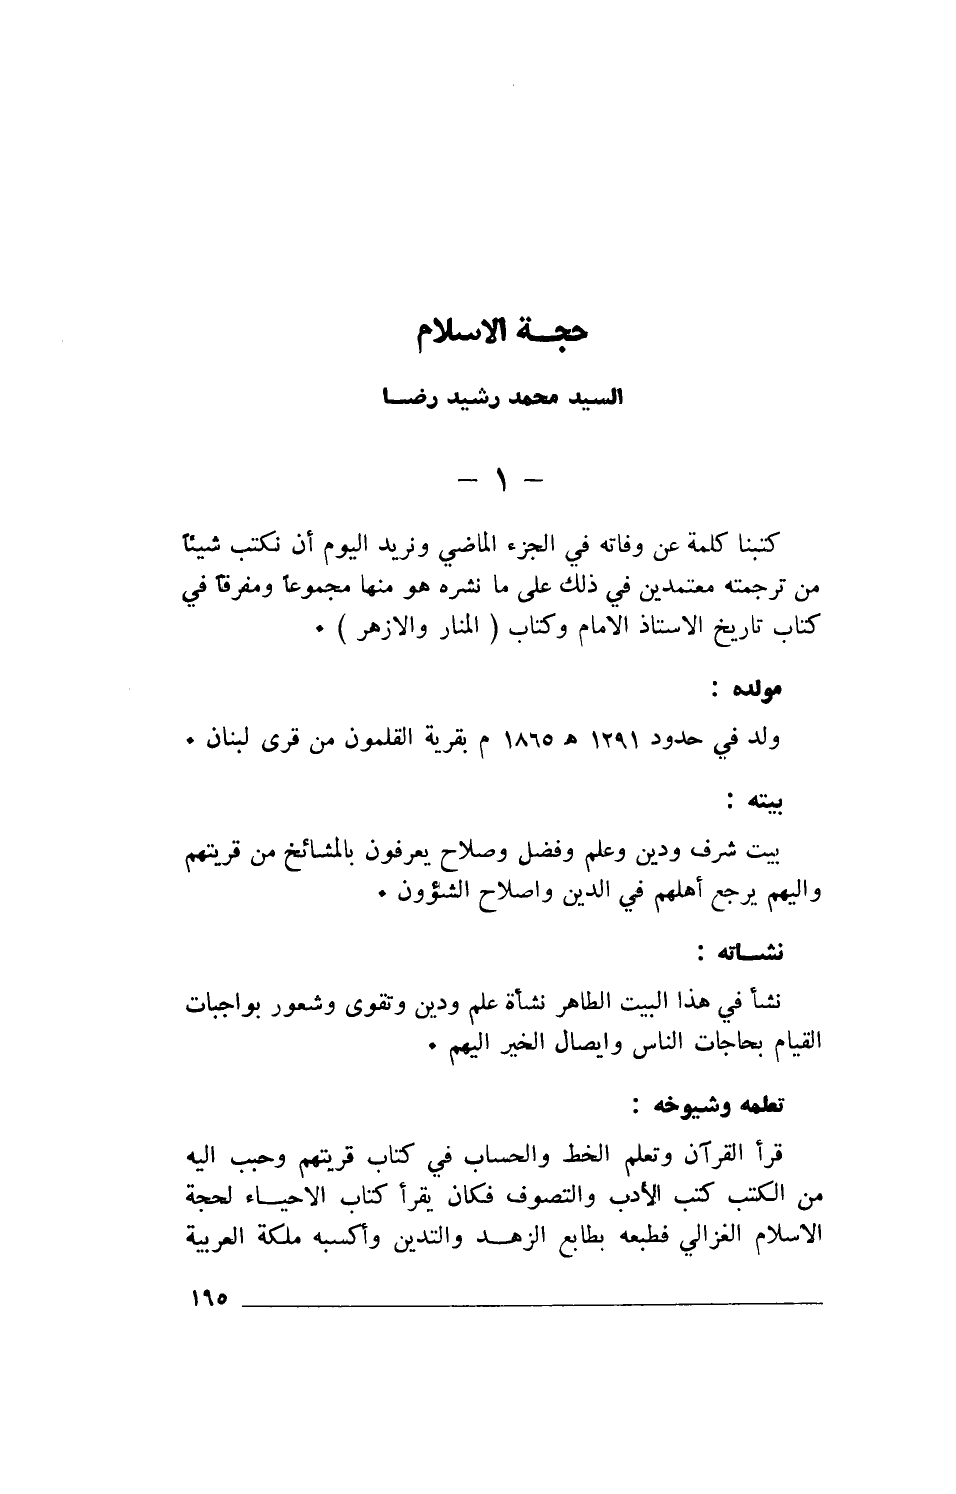 حجة الاسلام
السيد محمد رشيد رضا
- ١ -
كتبنا كلمة عن وفاته في الجزء الماضي ونريد اليوم أن نكتب شيئاً
من ترجمته معتمدين في ذلك على ما نشره هو منها مجموعاً ومفرقاً في
كتاب تاريخ الاستاذ الامام وكتاب ( المنار والازهر ) ٠
مولده :
ولد في حدود ١٢٩١ هـ ١٨٦٥ م بقرية القلمون من قرى لبنان ٠
بيته :
بيت شرف ودين وعلم وفضل وصلاح يعرفون بالمشائخ من قريتهم
واليهم يرجع أهلهم في الدين واصلاح الشؤون ٠
نشاته :
نشأ في هذا البيت الطاهر نشأة علم ودين وتقوى وشعور بواجبات
القيام بحاجات الناس وايصال الخير اليهم ٠
تعلمه وشيوخه :
قرأ القرآن وتعلم الخط والحساب في كتاب قريتهم وحبب اليه
من الكتب كتب الأدب والتصوف فكان يقرأ كتاب الاحياء لحجة
الاسلام الغزالي فطبعه بطابع الزهد والتدين وأكسبه ملكة العربية
١٩٥